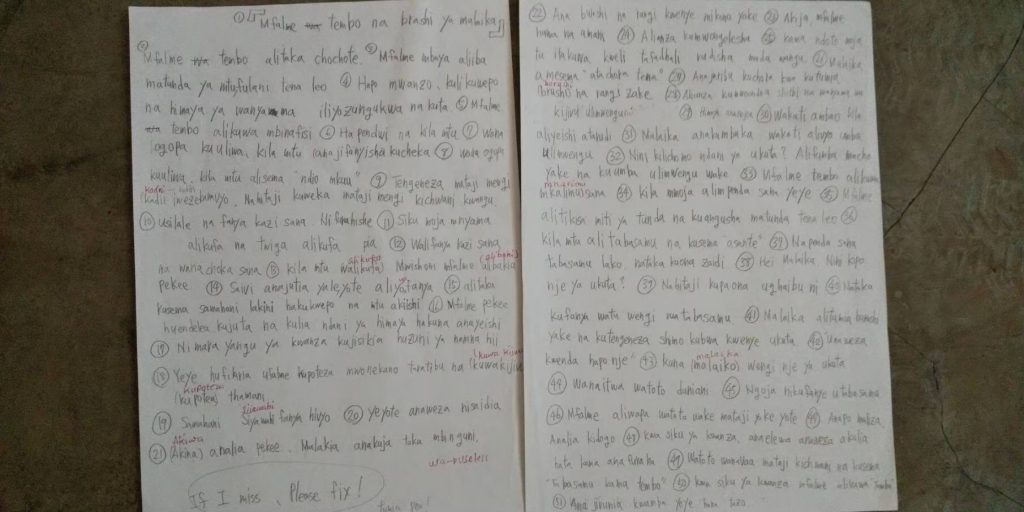 ① 「Mfalme tembo na brashi ya malaika」
② Mfalme tembo alitaka chochote. ③ Mfalme mbaya aliiba
matunda ya mtufulani tena leo ④ Hapo mwanzo, kulikuwepo
na himaya ya wanyama iliyozungukwa na kuta ⑤ Mfalme
tembo alikuwa mbinafisi ⑥ Hapendwi na kila mtu ⑦ Wana
ogopa kuuliwa, kila mtu anajifanyisha kucheka ⑧ wana ogopa
kuuliwa, kila mtu alisema "ndio mkuu" ⑨ Tengeneza mataji mengi
Nahitaji kuweka mataji mengi kichwani kwangu.
⑩ Usilale na fanya kazi sana. Nifurahishe ⑪ Siku moja mnyama
alikufa na twiga alikufa pia ⑫ Walifanya kazi sana
alikufa (alibaki)
na wana choka sana ⑬ kila mtu walikufa) Mwishoni mfalme albakia
pekee ⑭ Sasa anajutia yale yote aliyofanya ⑮ alitaka
kusema samahani lakini hakukwepo na mtu akiishi ⑯ Mfalme pekee
huendelea kujuta na kulia ndani ya himaya hakuna anayeishi
⑰ Ni mara yangu ya kwanza kujisikia huzuni ya namna hii
⑱ Yeye hufikiria ufalme hupoteza mwonekano taratibu na (kuwa kijivu
kupoteza
(kupotea) thamani
⑲ Samahani fanya hivyo ⑳ yeyote anaweza nisaidia
Akiwa
㉑ (Akina) analia pekee. Malakia anakuja toka mbinguni.
useless
If I miss, Please fix!
㉒ Ana burashi na rangi kwenye mikono yake ㉓ Akija, mfalme
hana na amani ㉔ Alianza kumwangalesha ㉕ kama ndoto moja
ta itakuwa kweli tafadhali rudisha muda wangu ㉖ Malaika
amesema "atachora tena" ㉗ Anajaribu kuchora kwa kutumia
(brushi) na rangi zake ㉘ Akianza kumwandia na wanama wa
kijivu ulimwenguni ㉙ Himaya ㉚ Wakati ambao kila
aliyeishi atarudi ㉛ Malaika anakumbuka wakati aliyo umba
ulimwengu ㉜ Nini kilichomo ndani ya ukuta? Alifumba macho
yake na kuumba ulimwengu wake ㉝ Mfalme tembo alikuwa
mkarimu
mkalimu sana ㉞ Kila mmoja alimpenda sana yeye ㉟ Mfalme
alitikisa miti ya tunda na kuangusha matunda tena leo ㊱
kila mtu alitabasamu na kusema "asante" ㊲ Napenda sana
tabasamu lako, nataka kuona zaidi ㊳ Hei Malaika, Nini kipo
nje ya ukuta? ㊴ Nahitaji kupaona ughaibuni ㊵ Nataka
kufanya watu wengi watabasamu ㊶ Malaika alitumia burashi
yake na kutengeneza shimo kubwa kwenye ukuta ㊷ Unaweza
malaika
kwenda hapo nje" ㊸ kuna (malaiko) wengi nje ya ukuta
㊹ Wanaitwa watoto duniani ㊺ Ngoja nikufanye utabasamu
㊻ Mfalme aliwapa watoto wake mataji yake yote Anapo maliza,
Analia kidogo ㊽ kwa siku ya kwanza, anaelewa anaweza akalia
hata kama ana furaha ㊾ Watoto wanavaa mataji kichwani na kusema
"Tabasamu kama tembo" ㊿ kwa siku ya kwanza mfalme alikuwa "tembo"
Ana jivunia kwamba yeye